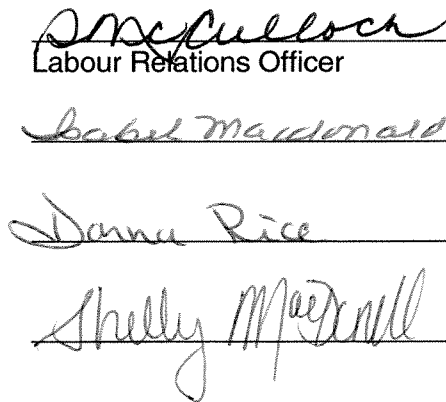 S McCulloch
Labour Relations Officer
Isabel Macdonald
Donna Rice
Shelly MacDonell